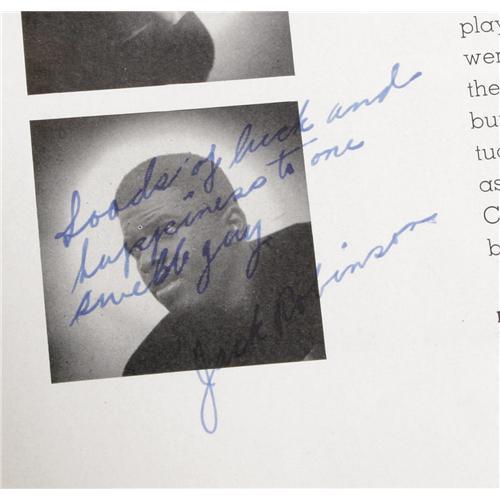 Loads of luck and
happiness to one
swell guy
Jack Robinson
play
wer
the
bu
tuc
as
C
b